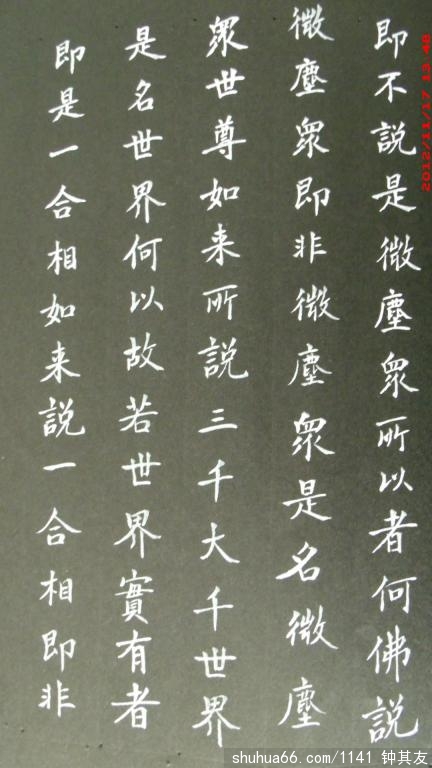 即不説是微塵眾所以者何佛説
微塵眾即非微塵眾是名微塵
眾世尊如来所説三千大千世界
是名世界何以故若世界實有者
即是一合相如来説一合相即非
2012/11/17 13:48
shuhua66.com/1141 钟其友